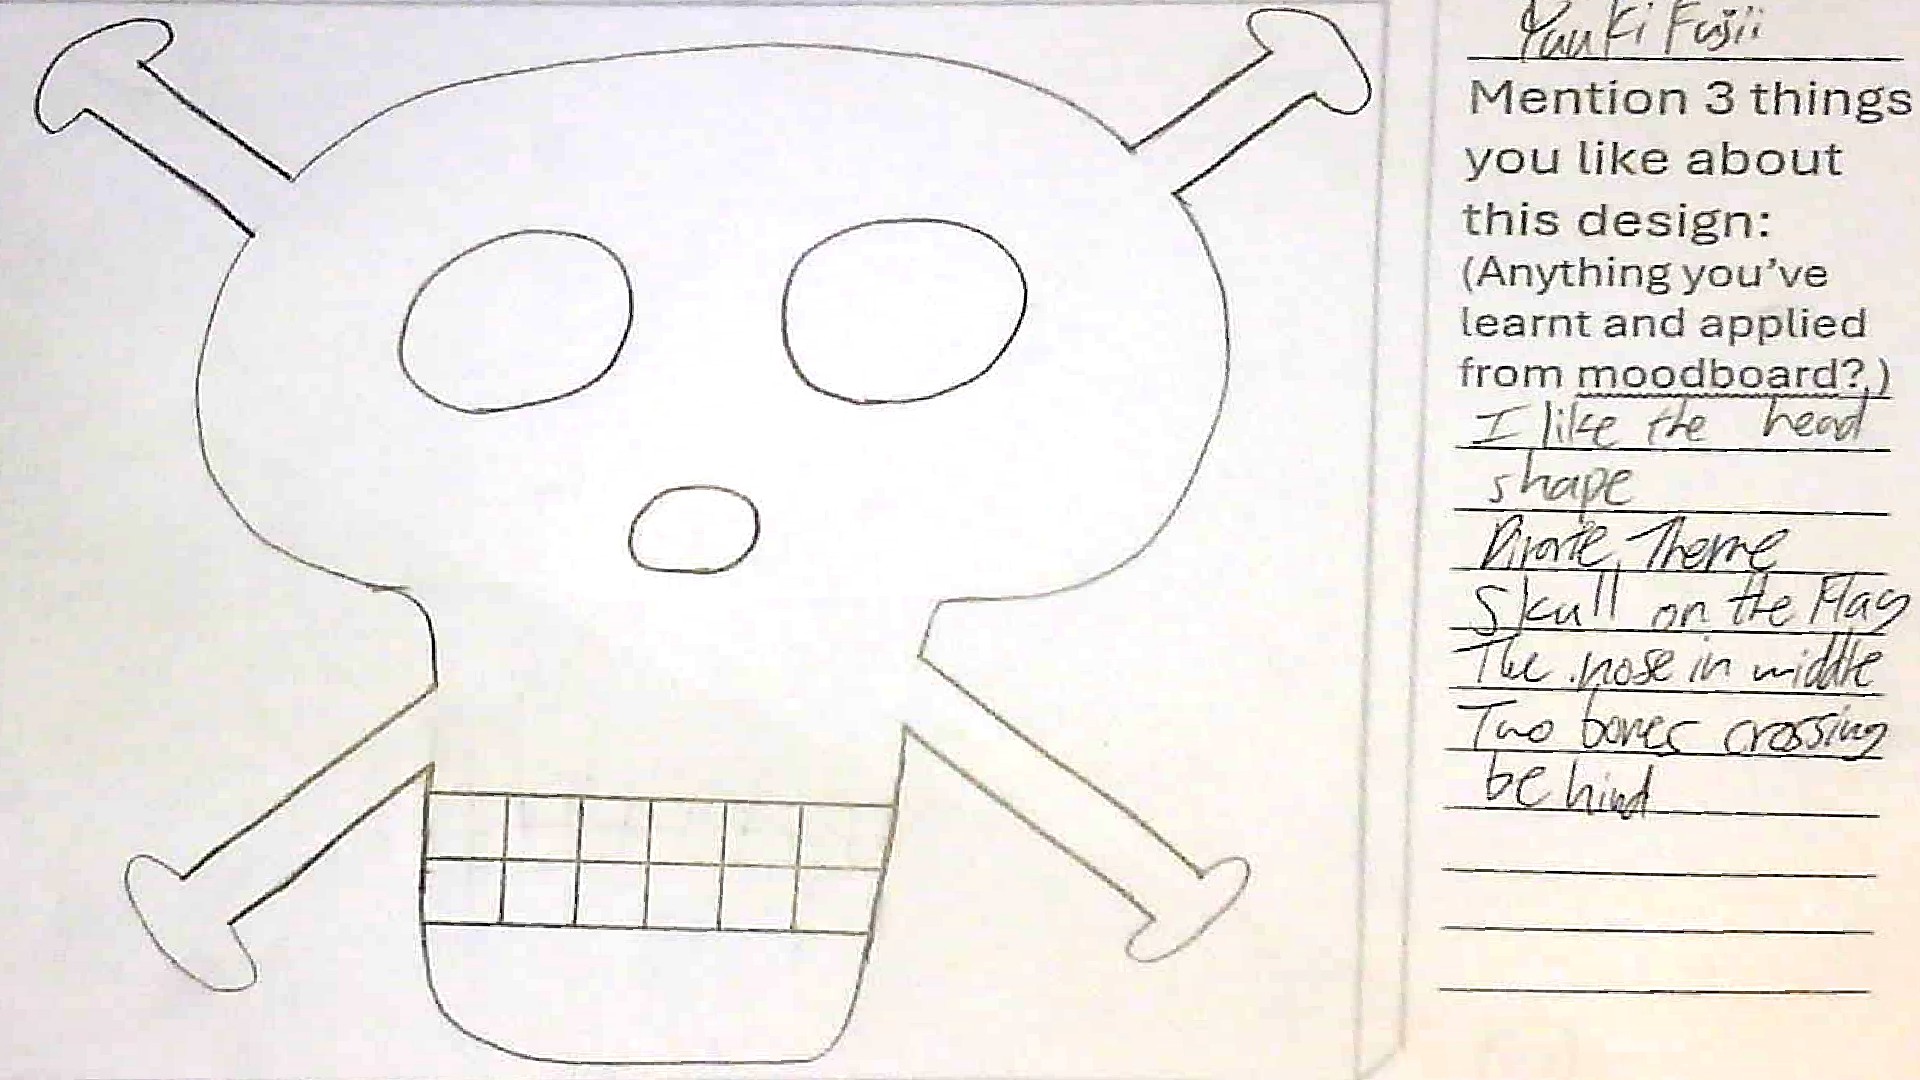 Yuuki Fujii
Mention 3 things
you like about
this design:
(Anything you've
learnt and applied
from moodboard?)
I like the head
shape
Pirate Theme
Skull on the Flag
The nose in middle
Two bones crossing
behind